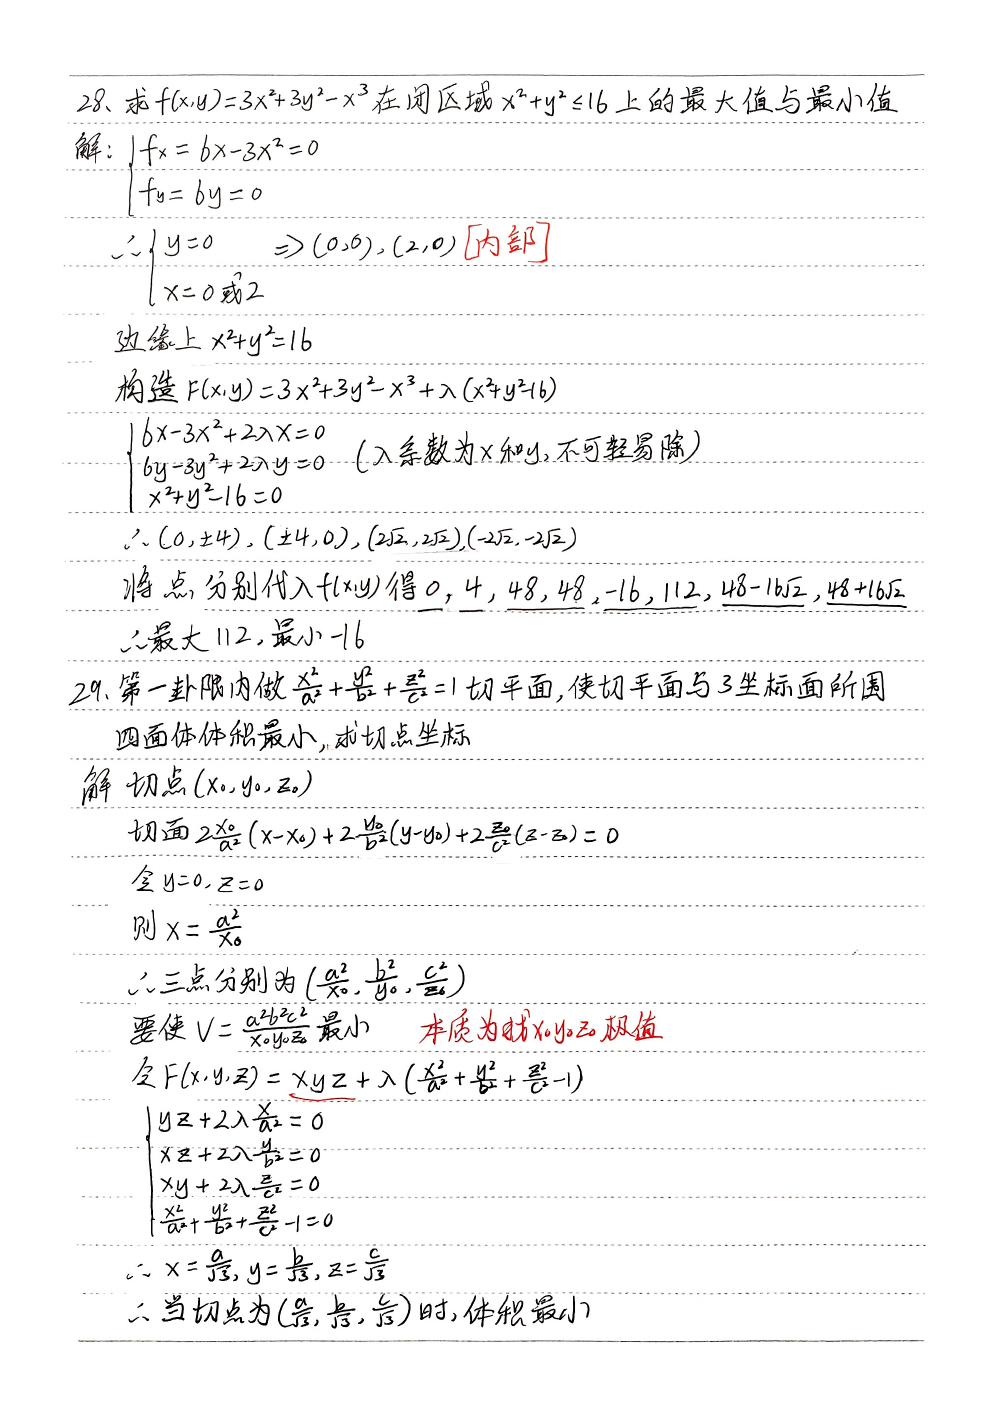 28、求f(x,y)=3x²+3y²-x³在闭区域x²+y²≤16上的最大值与最小值
解: fx=6x-3x²=0
fy=6y=0
∴ y=0 => (0,0),(2,0) [内部]
x=0或2
边缘上 x²+y²=16
构造F(x,y)=3x²+3y²-x³+λ(x²+y²-16)
6x-3x²+2λx=0
6y-3y²+2λy=0 (λ系数为x和y,不可轻易除)
x²+y²-16=0
∴(0,±4),(±4,0),(2√2,2√2),(-2√2,-2√2)
将点分别代入f(x,y)得0,4,48,48,-16,112,48-16√2,48+16√2
∴最大112,最小-16
29、第一卦限内做x²/a²+y²/b²+z²/c²=1切平面,使切平面与3坐标面所围
四面体体积最小,求切点坐标
解 切点(x₀,y₀,z₀)
切面2x₀/a²(x-x₀)+2y₀/b²(y-y₀)+2z₀/c²(z-z₀)=0
令y=0,z=0
则x=a²/x₀
∴三点分别为(a²/x₀,b²/y₀,c²/z₀)
要使V=a²b²c²/x₀y₀z₀最小 本质为找x₀y₀z₀极值
令F(x,y,z)=xyz+λ(x²/a²+y²/b²+z²/c²-1)
yz+2λx/a²=0
xz+2λy/b²=0
xy+2λz/c²=0
x²/a²+y²/b²+z²/c²-1=0
∴x=a/√3,y=b/√3,z=c/√3
∴当切点为(a/√3,b/√3,c/√3)时,体积最小